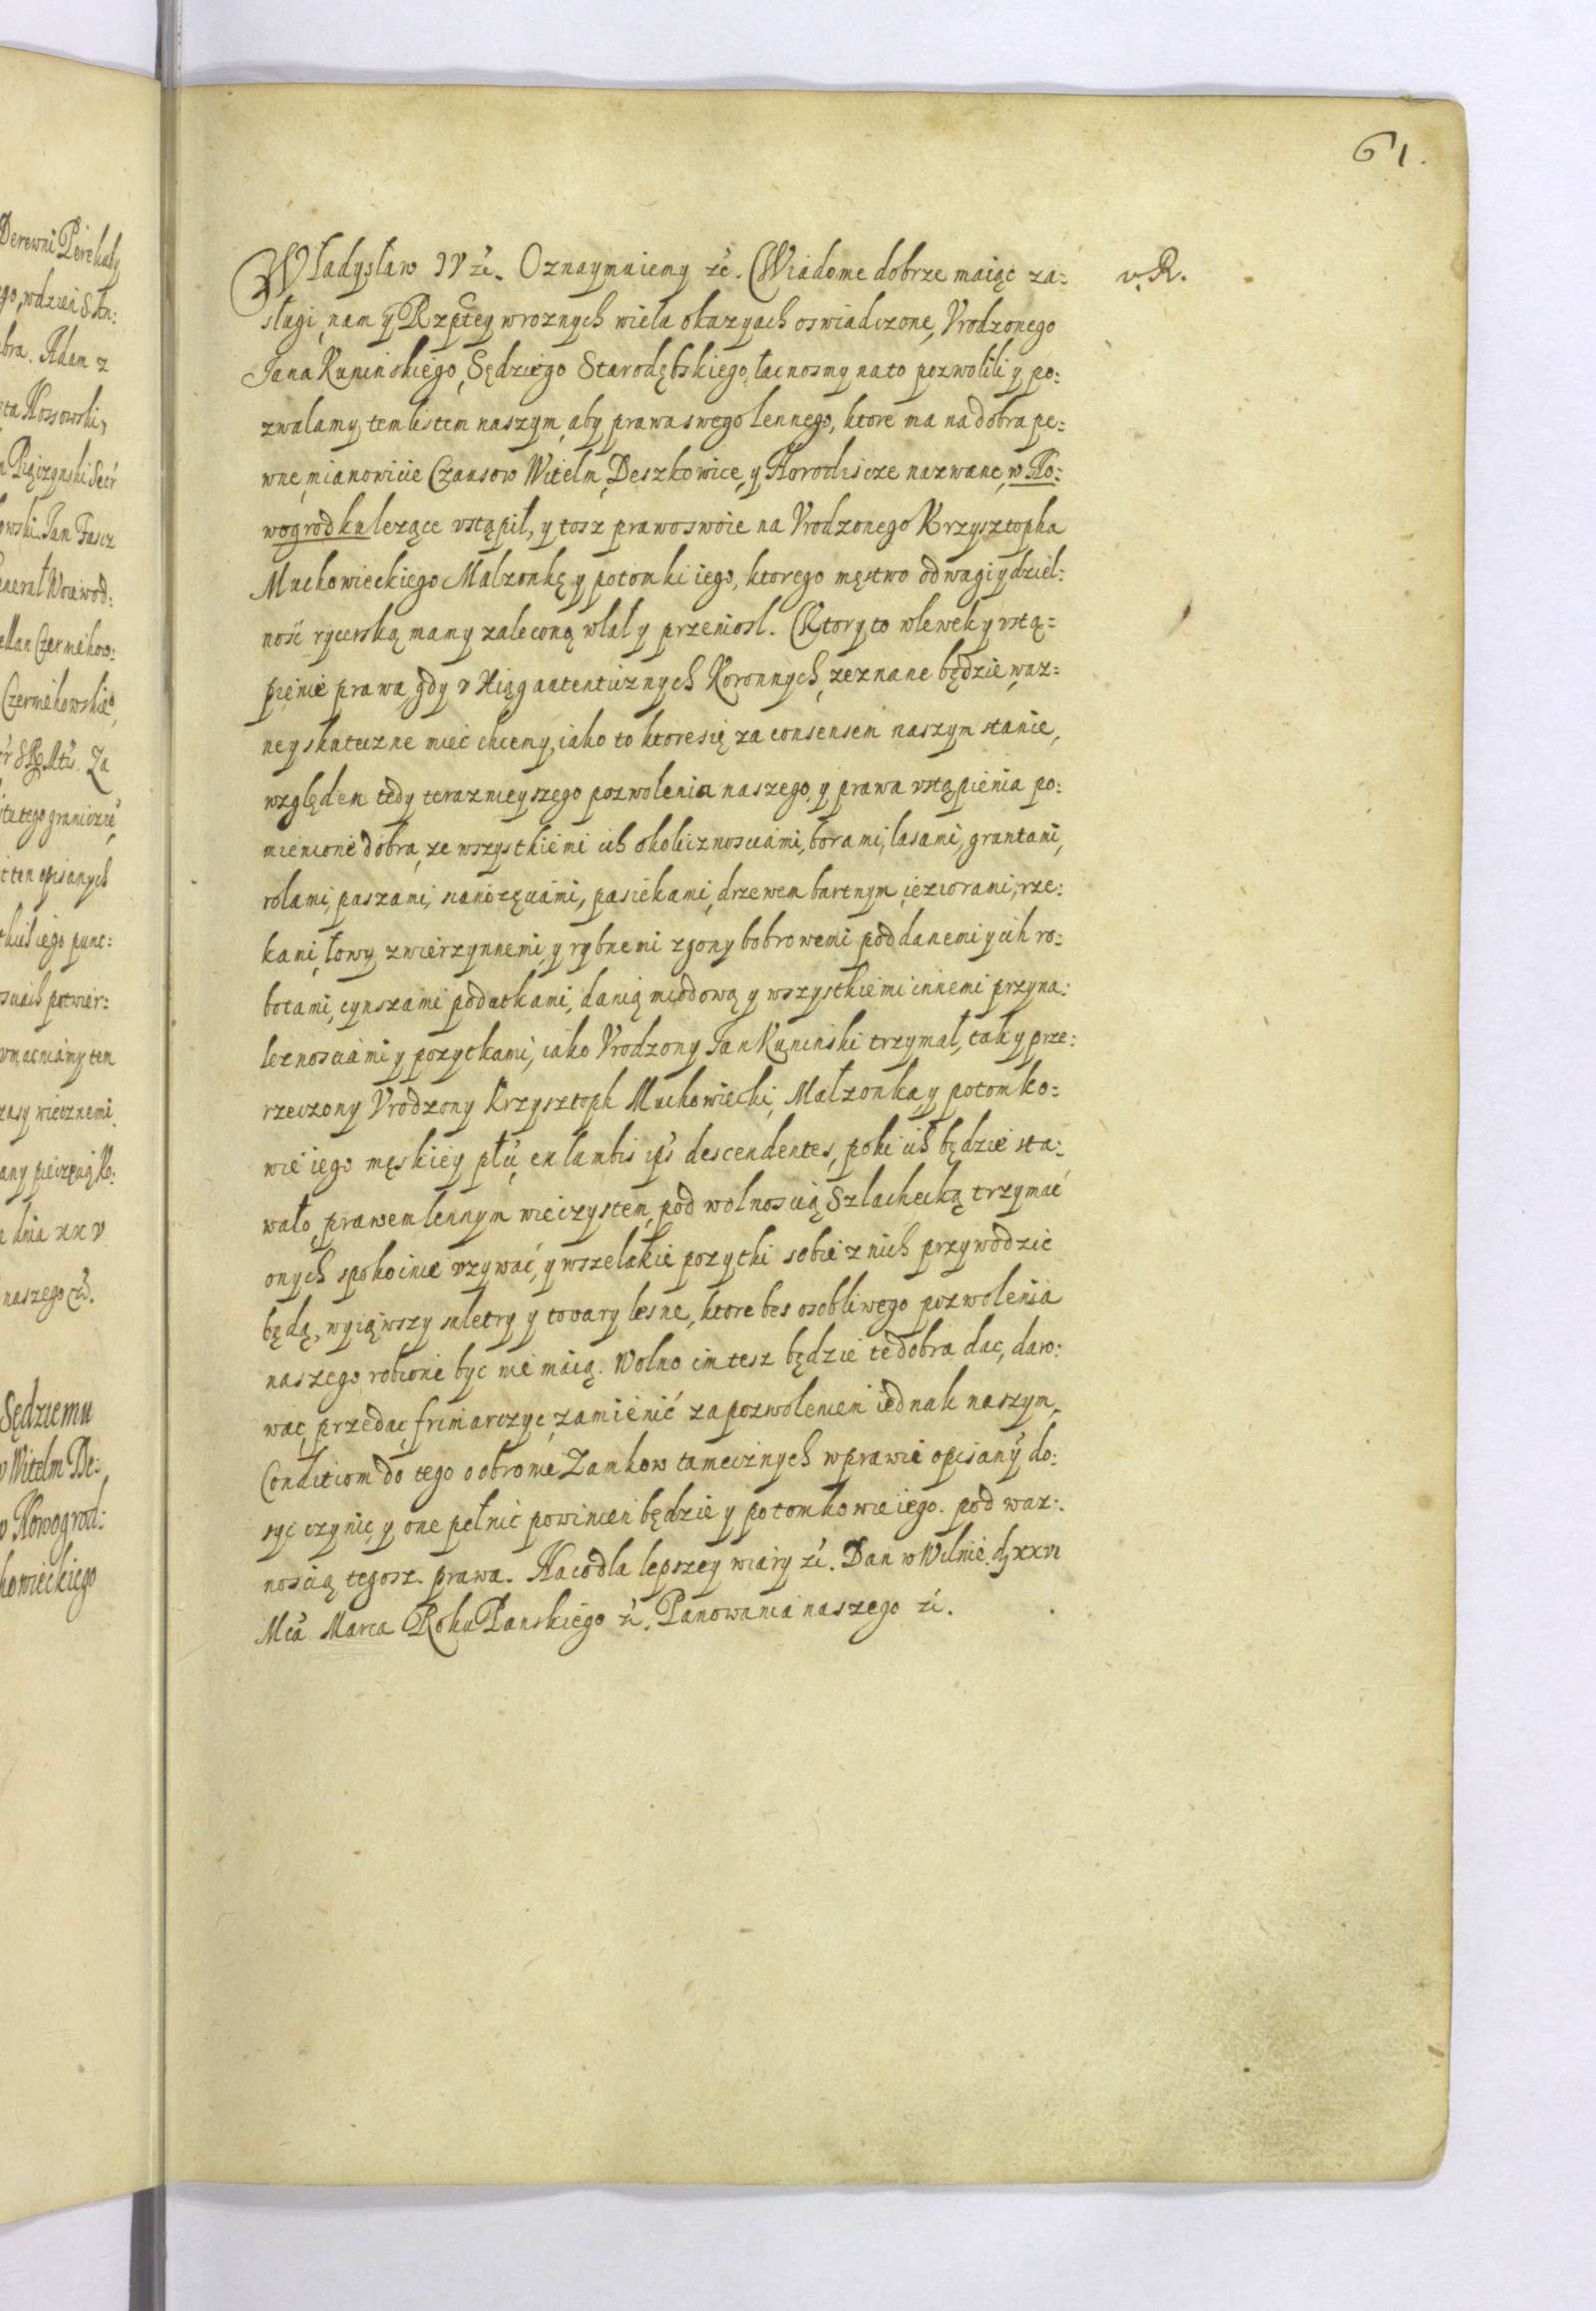 61.
Władysław IV etc. Oznaymuiemy etc. Wiadome dobrze maiąc za=
v. R.
sługi, nam y Rzptey wroznych wiela okazyach oswiadczone, Vrodzonego
Jana Kunińskiego, Sędziego Starodębskiego, łacnosmy nato pozwolili y po=
zwalamy tem listem naszym, aby prawa swego lennego, ktore ma na dobra pe=
wne, mianowicie Czausow Witelm, Deszkowice, y Horodiscze nazwane, w No=
wogrodku lezące vstąpił, y tosz prawo swoie na Vrodzonego Krzysztopha
Muchowieckiego Malzonkę y potomki iego, ktorego męstwo odwagi y dziel=
ność rycerską mamy zaleconą wlał y przeniosł. Ktory to wlewek y vstą=
pienie prawa, gdy v Xiąg autenticznych Koronnych, zeznane będzie, waz=
ne y skuteczne mieć chcemy, iako to ktore się za consensem naszym stanie,
względem tedy teraznieyszego pozwolenia naszego, y prawa vstąpienia po=
mienione dobra, ze wszystkiemi ich okolicznosciami, borami, lasami, gruntami,
rolami, paszami, sianozęciami, pasiekami, drzewem bartnym, ieziorami, rze=
kami, łowy zwierzynnemi, y rybnemi zgony bobrowemi poddanemi y ich ro=
botami, cynszami podatkami, danią miodową y wszystkiemi innemi przyna=
leznosciami y pozytkami, iako Vrodzony Jan Kuninski trzymał, tak y prze=
rzeczony Vrodzony Krzysztoph Muchowiecki, Małzonka, y potomko=
wie iego męskiey płci, ex lumbis eius descendentes, poki ich będzie sta=
wało, prawem lennym wieczystem, pod wolnoscią Szlachecką trzymać
onych spokoinie vzywać, y wszelakie pozytki sobie z nich przywodzic
będą, wyiąwszy saletry y towary lesne, ktore bes osobliwego pozwolenia
naszego robione byc nie maią. Wolno im tesz będzie te dobra dac, daro=
wac, przedac, frimarczyc, zamienić za pozwoleniem iednak naszym,
Conditiom do tego o obronie Zamkow tamecznych w prawie opisany do=
syc czynic, y one pełnić powinien będzie y potomkowie iego. pod waz=
noscią tegosz prawa. Na co dla lepszey wiary etc. Dan w Wilnie d. xxvi
Mca Marca Roku Panskiego etc. Panowania naszego etc.